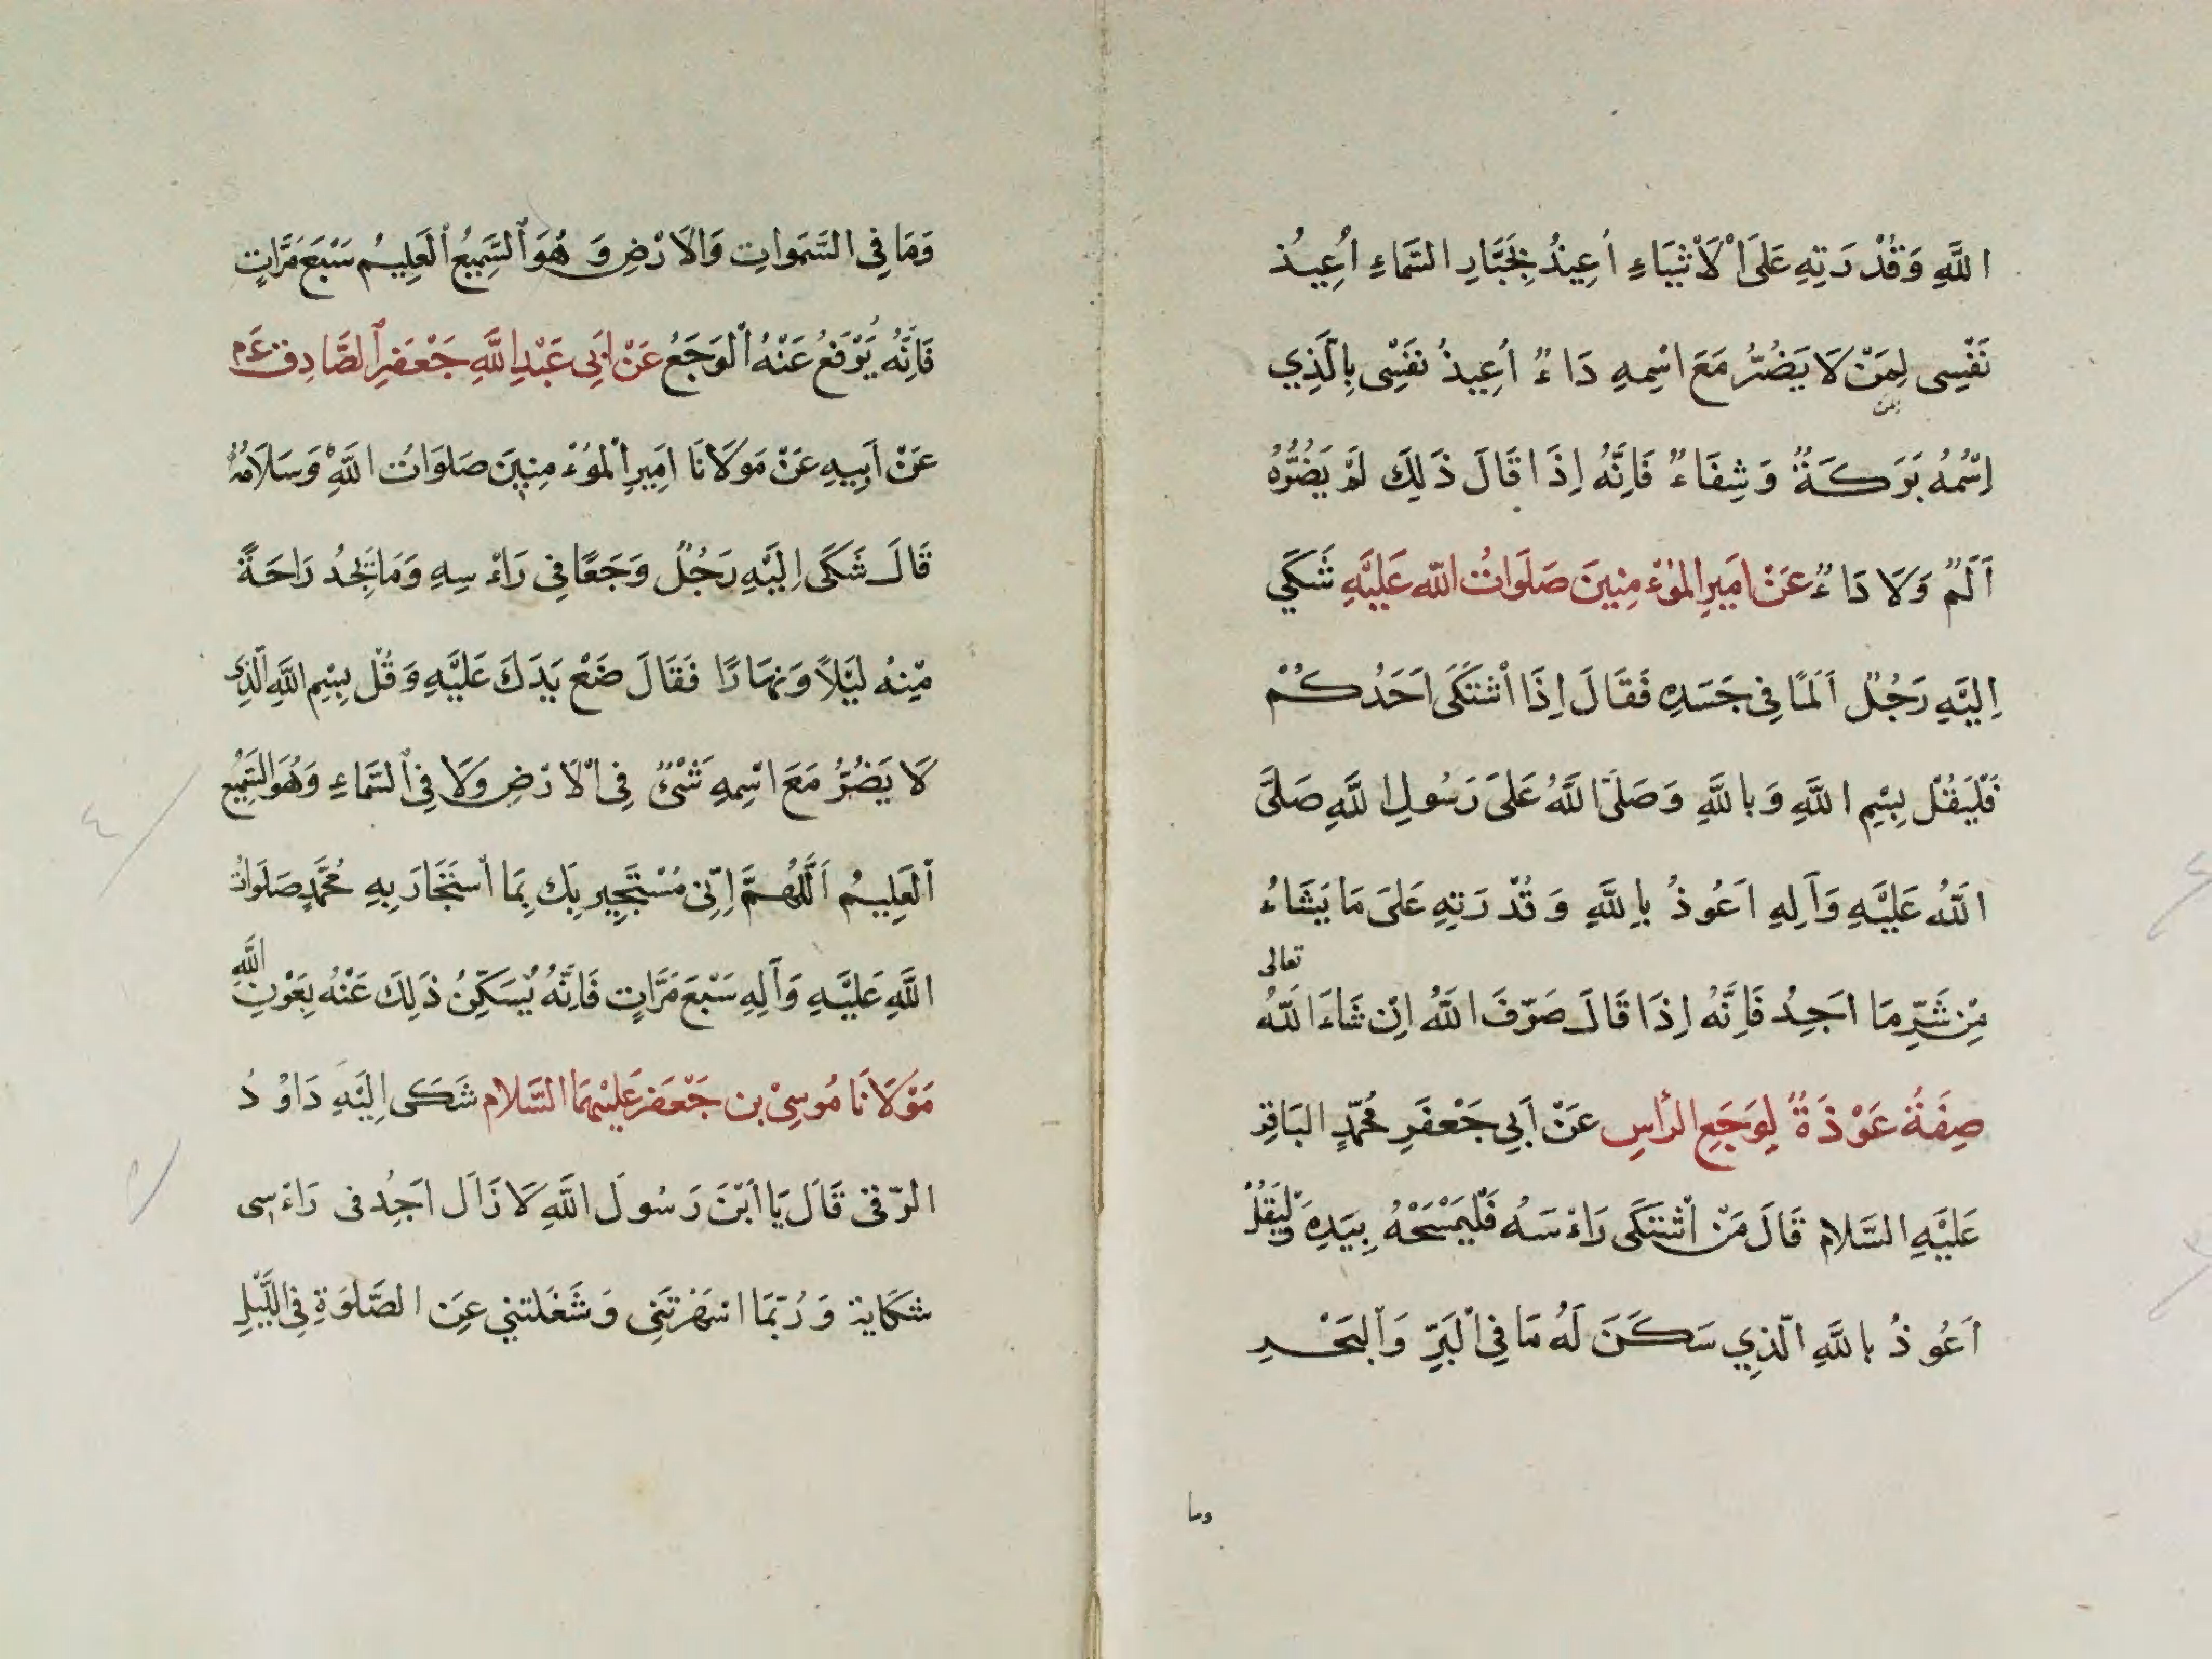 اللَّهِ وَقُدْرَتِهِ عَلَى الْأَشْيَاءِ أُعِيذُ بِجَبَّارِ السَّمَاءِ أُعِيذُ
نَفْسِي لِمَنْ لَا يَضُرُّ مَعَ اسْمِهِ دَاءٌ أُعِيذُ نَفْسِي بِالَّذِي
بمن
اِسْمُهُ بَرَكَةٌ وَشِفَاءٌ فَاِنَّهُ اِذَا قَالَ ذَلِكَ لَمْ يَضُرُّهُ
اَلَمٌ وَلَا دَاءٌ عَنْ اَمِيرِ الْمُؤْمِنِينَ صَلَوَاتُ اللّه عَلَيْهِ شَكَي
اِلَيْهِ رَجُلٌ اَلَمًا فِي جَسَدِهِ فَقَالَ اِذَا اْشْتَكَى اَحَدُكُمْ
فَلْيَقُلْ بِسْمِ اللَّهِ وَبِاللَّهِ وَصَلَّى اللَّهُ عَلَى رَسُولِ اللَّهِ صَلَّى
اللَّهُ عَلَيْهِ وَآلِهِ اَعُوذُ بِاللَّهِ وَقُدْرَتِهِ عَلَى مَا يَشَاءُ
مِنْ شَرِّ مَا اَجِدُ فَاِنَّهُ اِذَا قَالَ صَرَّفَ اللَّهُ اِنْ شَاءَ اللَّهُ تعالى
صِفَةُ عَوْذَةٌ لِوَجَعِ الرأسِ عَنْ اَبِي جَعْفَرِ مُحَمَّدٍ البَاقِرِ
عَلَيْهِ السَّلام قَالَ مَنْ اْشْتَكَى رَاءْسَهُ فَلْيَمْسَحْهُ بِيَدِهِ وَلْيَقُلْ
اَعُوذُ بِاللَّهِ الَّذِي سَكَنَ لَهُ مَا فِي الْبَرِّ وَالْبَحْرِ
وما
وَمَا فِي السَّمَوَاتِ وَالاَرْضِ وَ هُوَ السَّمِيعُ الْعَلِيمُ سَبْعَ مَرَّاتٍ
فَاِنَّهُ يَرْفَعُ عَنْهُ الْوَجَعُ عَنْ اَبِي عَبْدِ اللَّهِ جَعْفَرِ الصَّادِق عَم
عَنْ اَبِيهِ عَنْ مَوْلَانَا اَمِيرِ الْمُؤْمِنِينَ صَلَوَاتُ اللَّهِ وَسَلَامُهُ
قَالَ شَكَى اِلَيْهِ رَجُلٌ وَجَعًا فِي رَاءْسِهِ وَمَا يَجِدُ رَاحَةً
مِنْهُ لَيْلًا وَنَهَارًا فَقَالَ ضَعْ يَدَكَ عَلَيْهِ وَقُلْ بِسْمِ اللَّهِ الَّذِي
لَا يَضُرُّ مَعَ اسْمِهِ شَىْءٌ فِي الْاَرْضِ وَلَا فِي السَّمَاءِ وَهُوَ السَّمِيْعُ
الْعَلِيمُ اَللَّهُمَّ اِنِّى مُسْتَجِير بِكَ بِمَا اْسْتَجَارَ بِهِ مُحَمَّدٍ صَلَوَاتُ
اللَّهِ عَلَيْهِ وَآلِهِ سَبْعَ مَرَّاتٍ فَاِنَّهُ يُسَكِّنُ ذَلِكَ عَنْهُ بِعَوْنِ اللَّهِ
مَوْلَانَا مُوسَى بن جَعْفَر عَلَيْهِمَا السَّلام شَكَى اِلَيْهِ دَاوُدُ
الرّقى قَالَ يَا ابْنَ رَسُولَ اللَّهِ لَا زَالَ اَجِدُ فى رَاءْسِى
شكَاية وَرُبَّمَا اسْهَرَتنِى وَشَغَلتنِي عَن الصَّلوَةِ فِي اللَّيْلِ